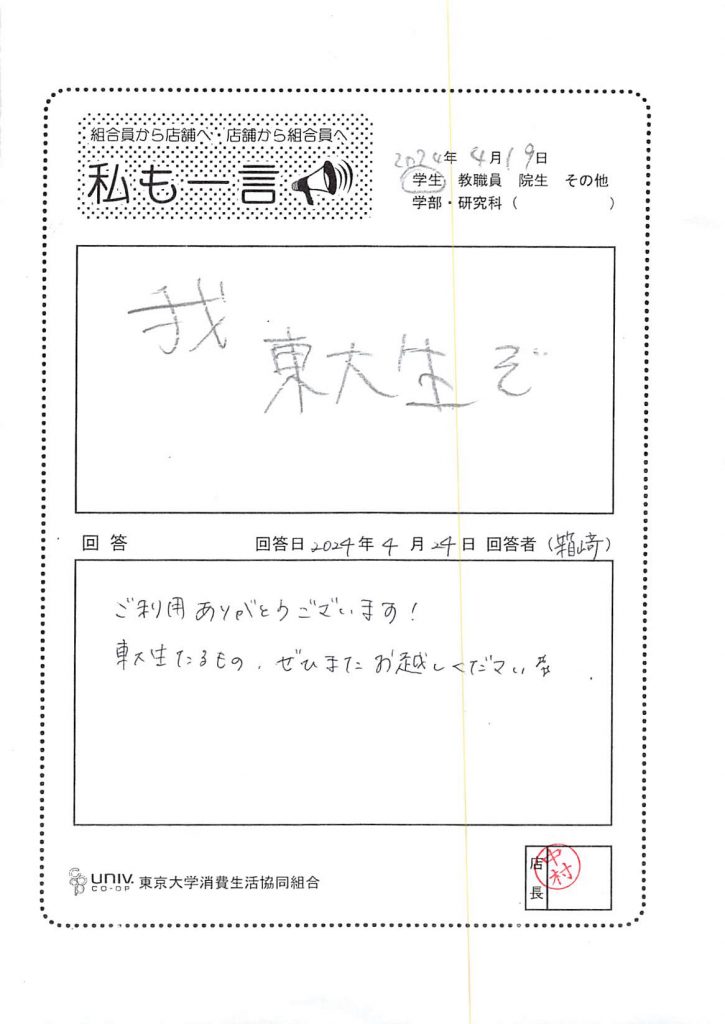 組合員から店舗へ・店舗から組合員へ
私も一言
2024年 4月19日
学生 教職員 院生 その他
学部・研究科 ( )
我
東大生ぞ
回答 回答日 2024年 4月 24日 回答者 (箱崎)
ご利用ありがとうございます!
東大生たるもの、ぜひまたお越しくださいませ
UNIV. CO-OP 東京大学消費生活協同組合
店長
中村